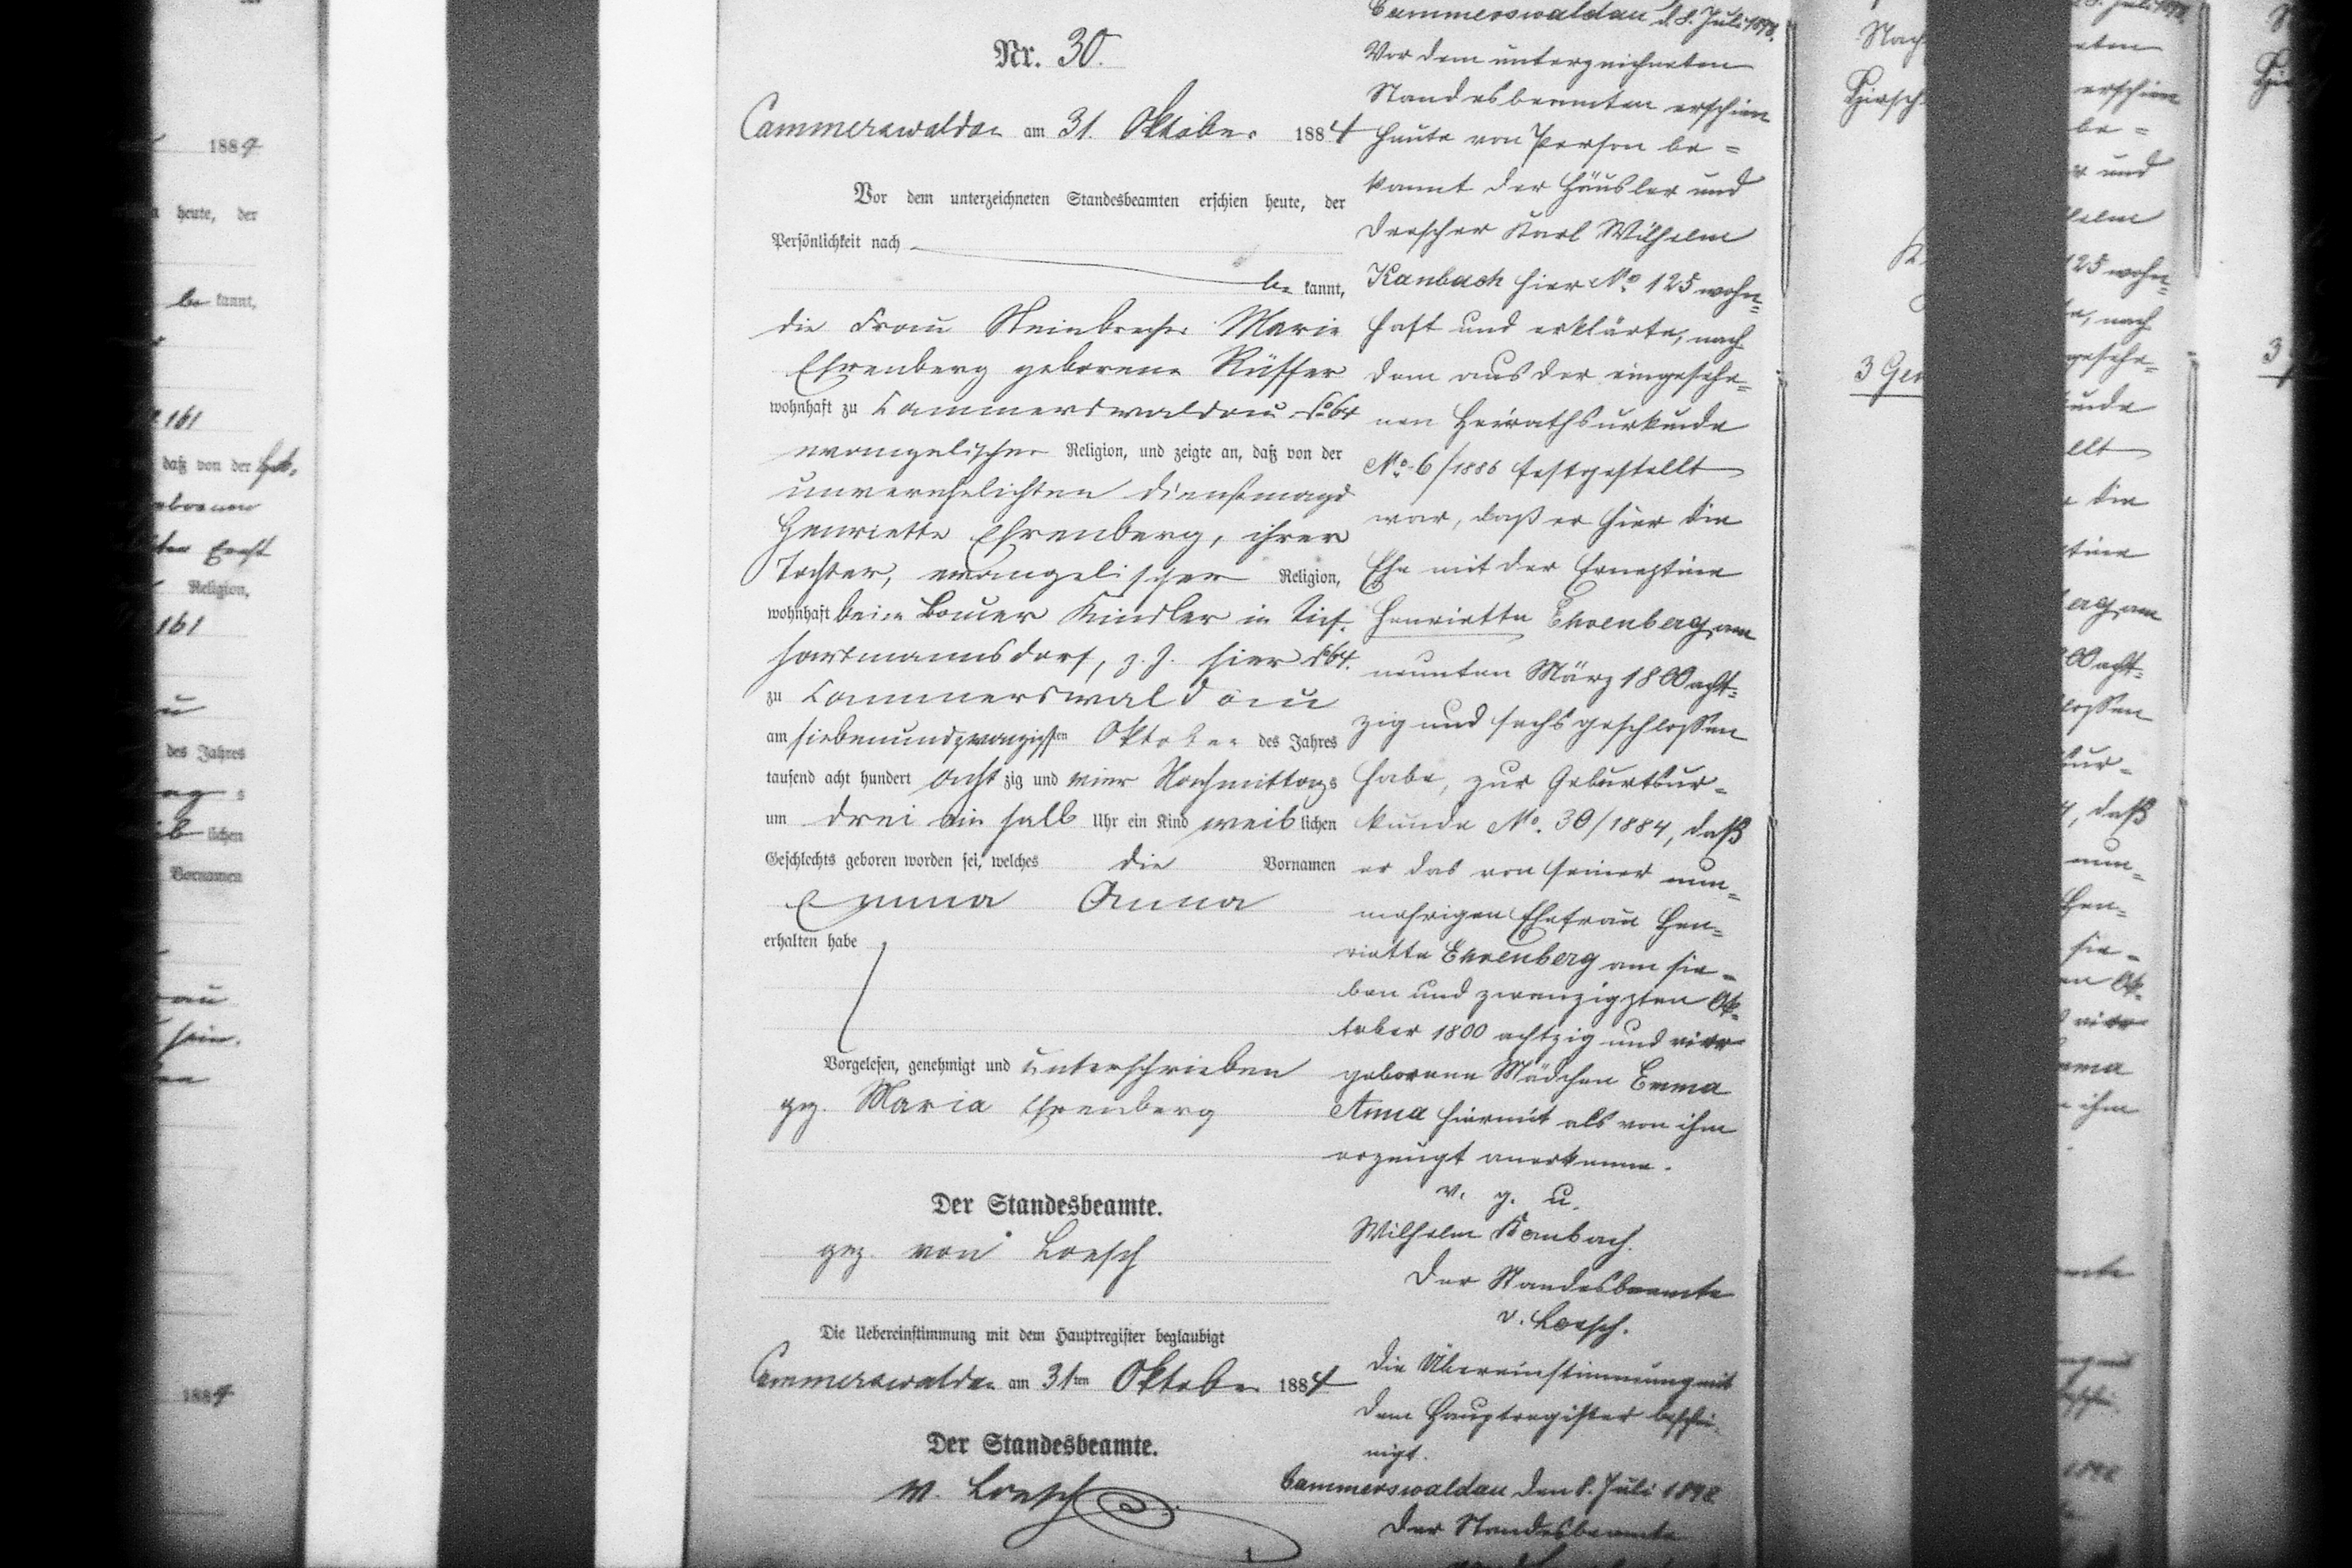 Nr. 30.
Cammerswaldau am 31. Oktober 1884
Vor dem unterzeichneten Standesbeamten erschien heute, der
Persönlichkeit nach
be kannt,
die Frau Steinbrecher Marie
Ehrenberg geborene Rüffer
wohnhaft zu Cammerswaldau No 64
evangelischer Religion, und zeigte an, daß von der
unverehelichten Dienstmagd
Henriette Ehrenberg, ihrer
Tochter, evangelischer Religion,
wohnhaft beim Bauer Kindler in Tief-
hartmannsdorf, z. Z. hier No 64.
zu Cammerswaldau
am siebenundzwanzigsten Oktober des Jahres
tausend acht hundert acht zig und vier Nachmittags
um drei ein halb Uhr ein Kind weib lichen
Geschlechts geboren worden sei, welches die Vornamen
Emma Anna
erhalten habe
Vorgelesen, genehmigt und unterschrieben
gez. Maria Ehrenberg
Der Standesbeamte.
gez. von Loesch
Die Uebereinstimmung mit dem Hauptregister beglaubigt
Cammerswaldau am 31ten Oktober 1884
Der Standesbeamte.
v. Loesch
Cammerswaldau d. 8. Juli 1898.
Vor dem unterzeichneten
Standesbeamten erschien
heute von Person be=
kannt der Häusler und
Drescher Karl Wilhelm
Kanbach hier No 125 wohn=
haft und erklärte, nach
dem aus der eingesehe=
nen Heirathsurkunde
No. 6/1886 festgestellt
war, daß er hier die
Ehe mit der Ernestine
Henriette Ehrenberg am
neunten März 1800 acht=
zig und sechs geschlossen
habe, zur Geburtsur=
kunde No. 30/1884, daß
er das von seiner nun=
mehrigen Ehefrau Hen=
riette Ehrenberg am sie=
ben und zwanzigsten Ok=
tober 1800 achtzig und vier
geborene Mädchen Emma
Anna hiermit als von ihm
erzeugt anerkenne.
v. g. u.
Wilhelm Kanbach.
Der Standesbeamte
v. Loesch.
Die Übereinstimmung mit
dem Hauptregister beschei-
nigt.
Cammerswaldau den 8. Juli 1898
Der Standesbeamte